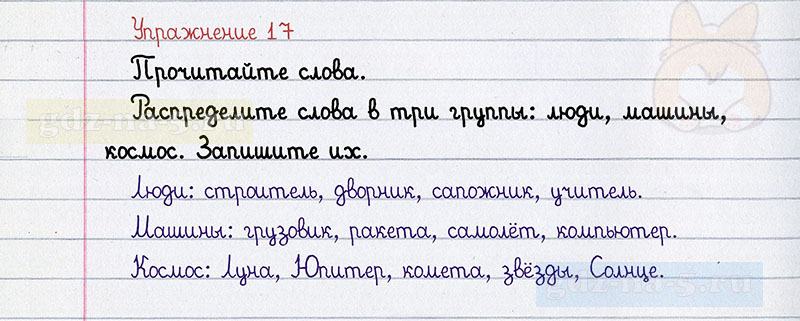 Упражнение 17
Прочитайте слова.
Распределите слова в три группы: люди, машины,
космос. Запишите их.
Люди: строитель, дворник, сапожник, учитель.
Машины: грузовик, ракета, самолёт, компьютер.
Космос: Луна, Юпитер, комета, звёзды, Солнце.
gdz-na-5.ru
gdz-na-5.ru